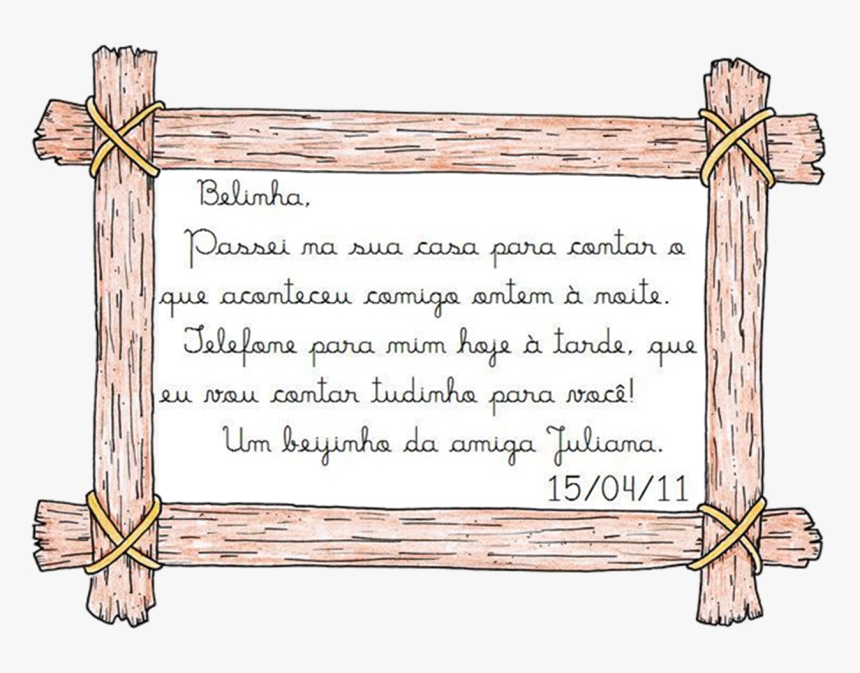 Belinha,
Passei na sua casa para contar o
que aconteceu comigo ontem à noite.
Telefone para mim hoje à tarde, que
eu vou contar tudinho para você!
Um beijinho da amiga Juliana.
15/04/11